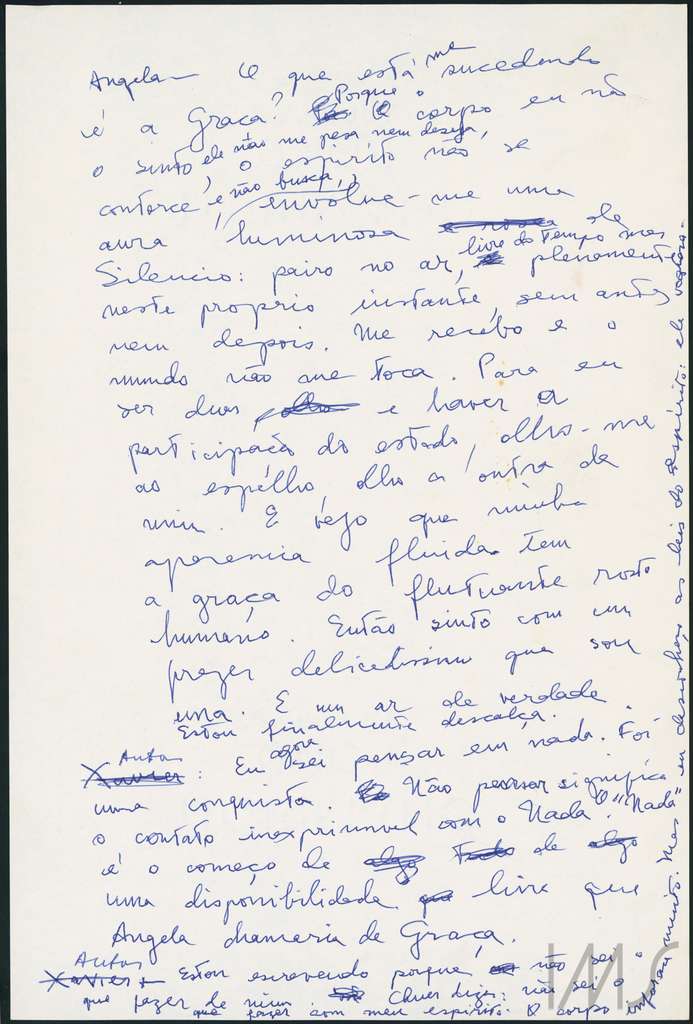 Angela — O que está me sucedendo
é a Graça? Porque o corpo eu não
o sinto, ele não me pesa nem deseja, o espirito não se
contorce e não busca, envolve-me uma
aura luminosa de
Silencio: pairo no ar, livre do tempo mas plenamente
neste proprio instante, sem antes
nem depois. Me recebo e o
mundo não me toca. Para eu
ser duas e haver a
participação do estado, olho-me
ao espêlho, olho a outra de
mim. E vejo que minha
aparencia fluida tem
a graça do flutuante rosto
humano. Então sinto com um
prazer delicadissimo que sou
una. E um ar de verdade.
Estou finalmente descalça.
Xavier Autor: Eu agora sei pensar em nada. Foi
uma conquista. Não pensar significa
o contato inexprimivel com o Nada. O "Nada"
é o começo de de
uma disponibilidade livre que
Angela chamaria de Graça.
Xavier Autor — Estou escrevendo porque não sei o
que fazer de mim. Quer dizer: não sei o
que fazer com meu espirito. O corpo
informa muito. Mas eu desconheço as leis do espírito: ele vagueia.
IMS